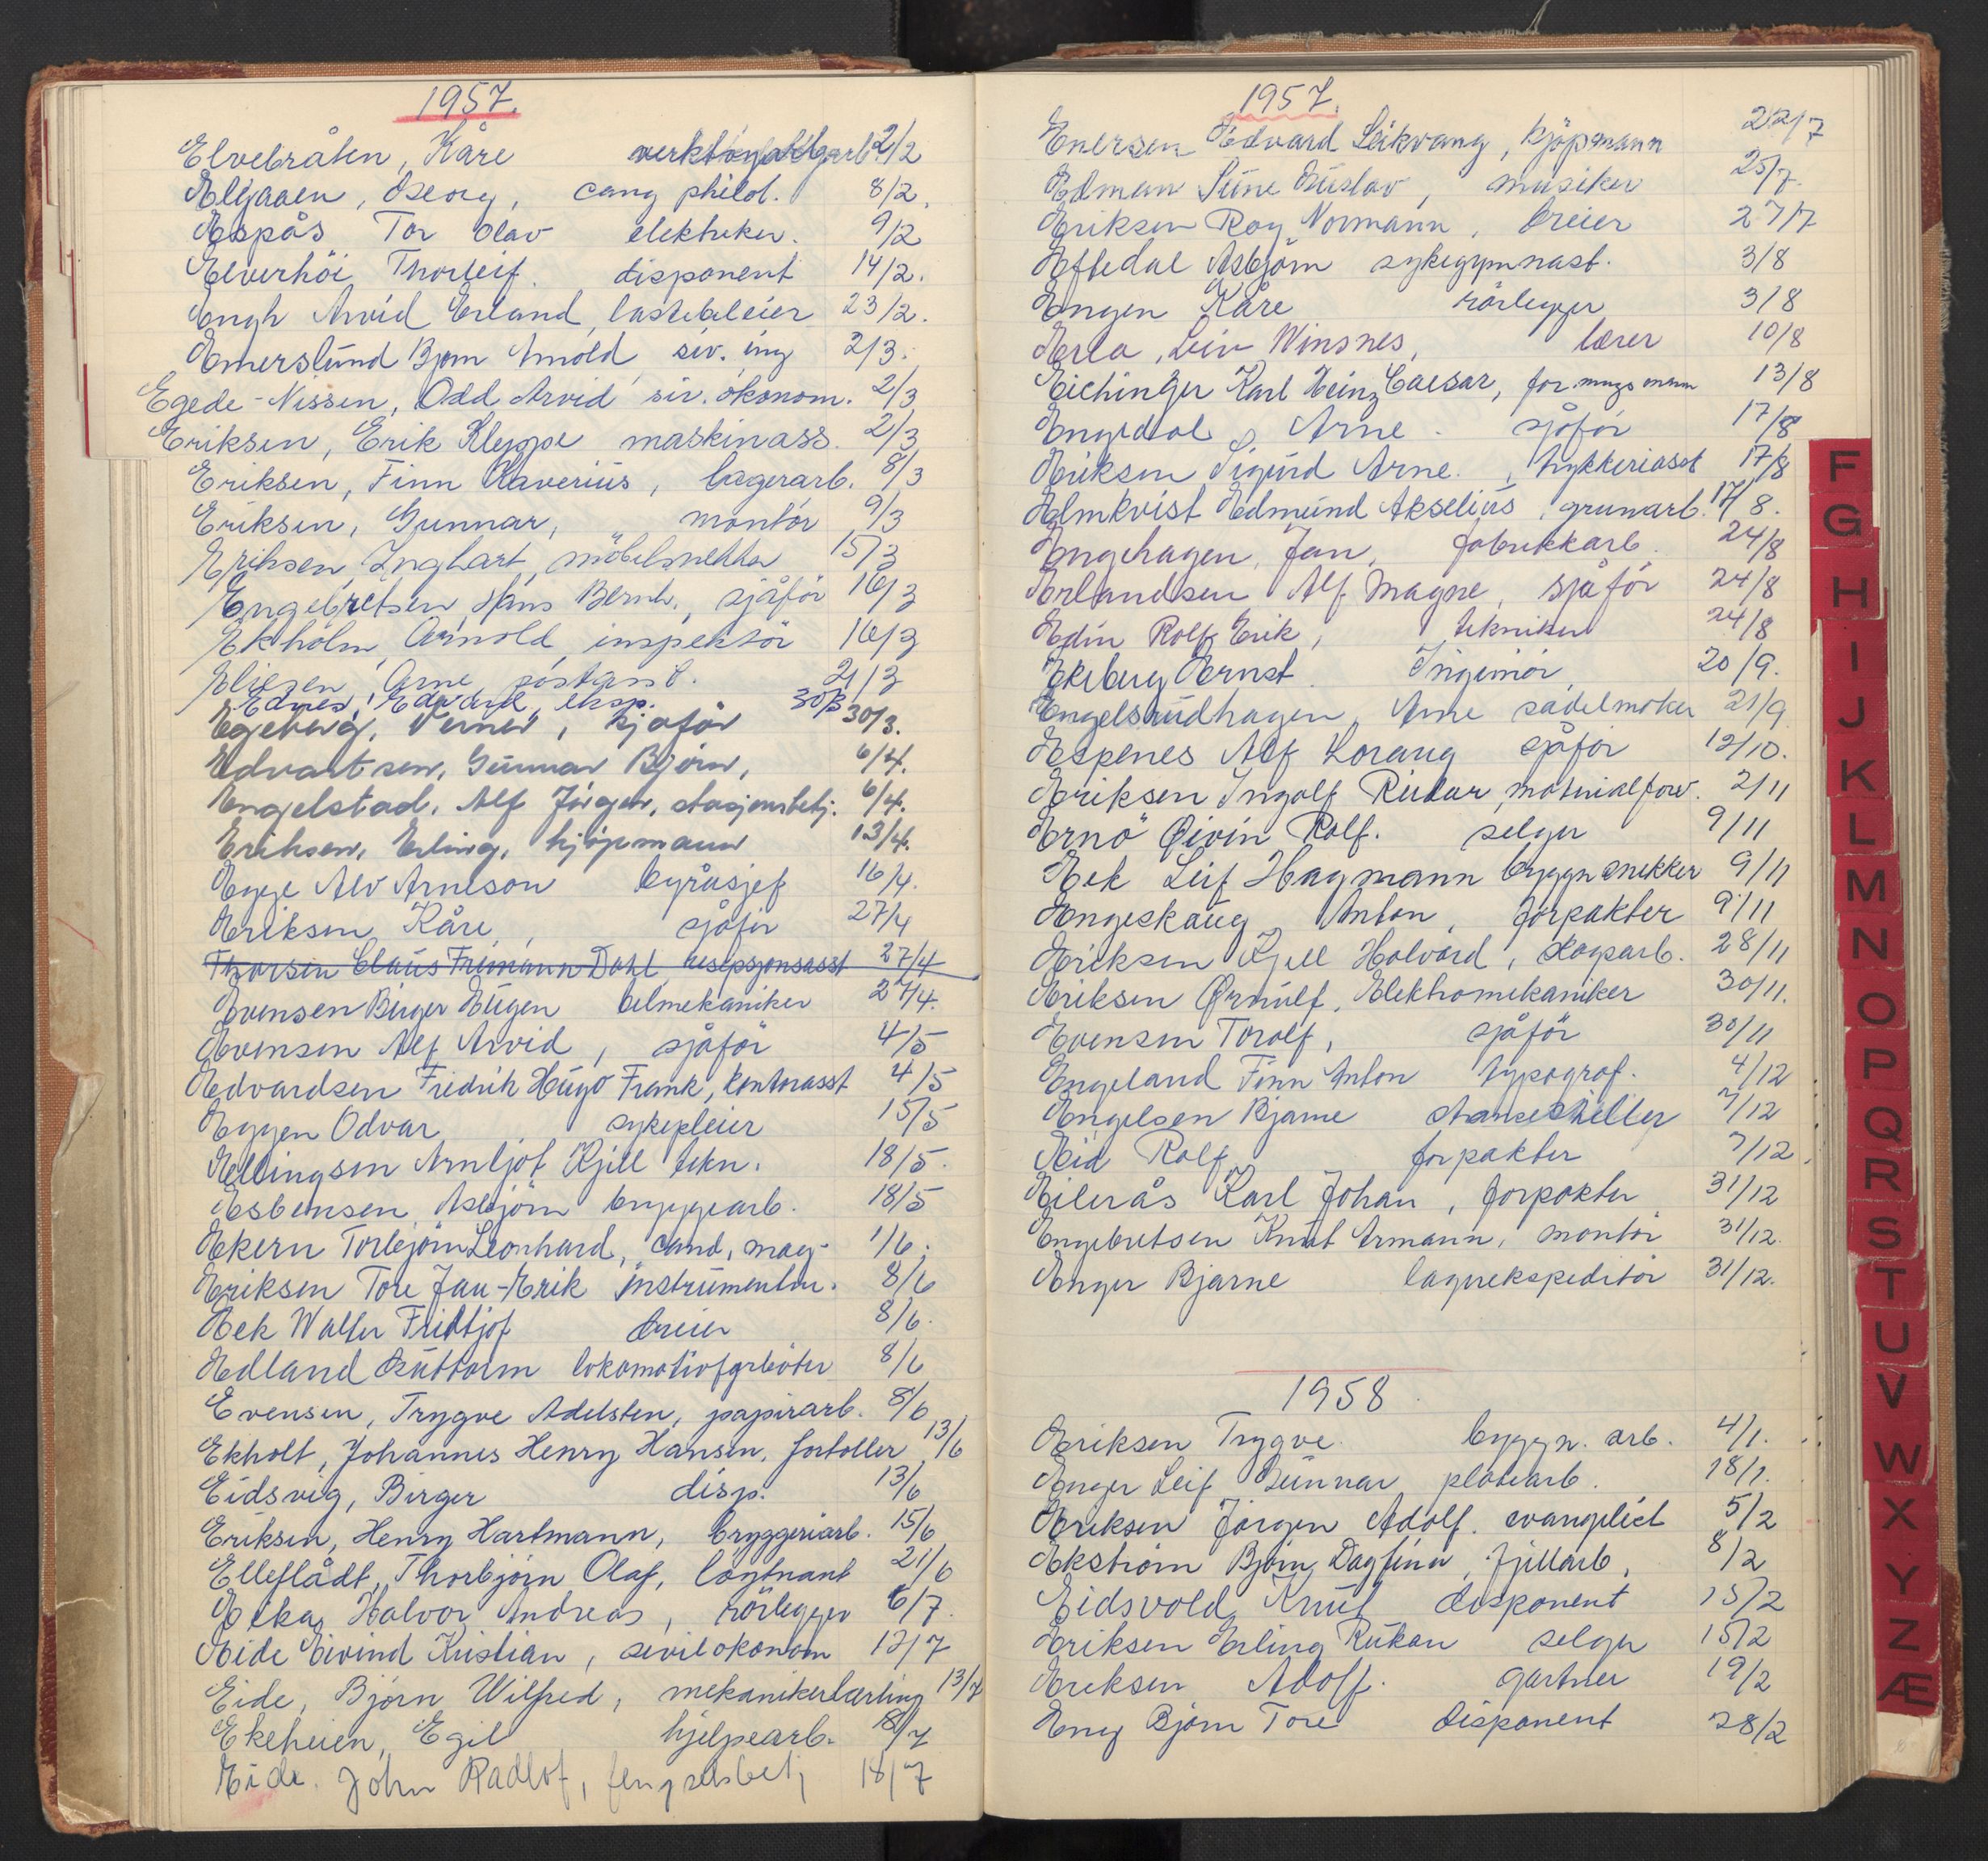 1957.
Elvebråten, Kåre 2/2
Elgaaen, Georg, cang philol. 8/2.
Espås Tor Olav elektriker. 9/2
Elverhöi Thorleif. disponent 14/2.
Engh Arvid Erland, lastebileier 23/2.
Emerslund Bjørn Arnold, siv. ing 2/3.
Egede-Nissen, Odd Arvid siv. økonom. 2/3
Eriksen, Erik Kleppe maskinass. 2/3
Eriksen, Finn Xaverius, lagerarb. 8/3
Eriksen, Gunnar, montör 9/3
Eriksen, Inghart, möbelsnekker 15/3
Engebretsen, Hans Bernh., sjåför 16/3
Ekholm, Arnold, inspektör 16/3
Eliesen, Arne postass. 21/3
Ednes, Edvard, eksp. 30/3
Egeberg, Verner, sjåför 30/3.
Edvartsen, Gunnar Björn, 6/4.
Engelstad, Alf Jörgen, stasjonsbetj. 6/4.
Eriksen, Erling, kjöpmann 13/4.
Egge Alv Arneson byråsjef 16/4.
Eriksen, Kåre, sjåför 27/4
Thorsen Claus Frimann Dahl, resepsjonsasst 27/4
Evensen Birger Eugen bilmekaniker 27/4.
Evensen Alf Arvid, sjåför 4/5
Edvardsen Fredrik Hugo Frank, kontorasst 4/5
Eggen Odvar sykepleier 15/5
Ellingsen Arnljot Kjell tekn. 18/5.
Esbensen Asbjörn byggearb. 18/5
Ekern Torbjörn Leonhard, cand. mag. 1/6.
Eriksen Tore Jan-Erik instrumentm. 8/6
Eek Walter Fridtjof dreier 8/6.
Edland Guttorm lokomotivfyrböter 8/6
Evensen, Trygve Adelsten, papirarb. 8/6
Ekholt, Johannes Henry Hansen, fortoller 13/6
Eidsvig, Birger disp. 13/6
Eriksen, Henry Hartmann, bryggeriarb. 15/6
Elleflådt, Thorbjörn Olaf, löytnant 21/6
Elka, Halvor Andreas, rörlegger 6/7
Eide Eivind Kristian, sivilökonom 12/7
Eide, Björn Wilfred, mekanikerlærling 13/7
Ekeheien, Egil hjelpearb. 18/7
Eide. John Radlof, fengselsbetj 18/7
1957.
Enersen Edvard Leikvang, kjöpmann 22/7
Edman Sune Gustav, musiker 25/7.
Eriksen Roy Normann, dreier 27/7
Eftedal Asbjörn sykegymnast. 3/8
Engen Kåre rörlegger 3/8
Erla, Liv Winsnes, lærer 10/8
Eichinger Karl Heinz Caesar, formingsmann 13/8
Engedal, Arne. sjåför 17/8
Eriksen Sigurd Arne., trykkeriasst 17/8
Elmkvist Edmund Akselius, grunnarb. 17/8.
Engehagen, Jan, fabrikkarb. 24/8
Erlandsen Alf Magne, sjåför 24/8
Edin Rolf Erik, tekniker 24/8
Ekeberg Ernst. Ingeniör, 20/9.
Engelsrudhagen, Arne sadelmaker 21/9
Espenes Alf Korang sjåför 12/10.
Eriksen Ingolf Reidar, materialforv. 2/11
Ernö Øivin Rolf. selger 9/11
Eek Leif Hagmann bygn snekker 9/11
Engeskaug Anton, forpakter 9/11
Eriksen Kjell Halvard, skogsarb. 28/11
Eriksen Ørnulf, Elektromekaniker 30/11.
Evensen Torolf, sjåför 30/11
Engeland Finn Anton typograf. 4/12
Engelsen Bjarne 7/12
Eid Rolf forpakter 7/12.
Eilerås Karl Johan, forpakter 31/12
Engebretsen Knut Armann, montör 31/12.
Enger Bjarne lagerekspeditör 31/12.
1958.
Eriksen Trygve. byggn. arb. 4/1.
Enger Leif Gunnar platearb. 18/1.
Eriksen Jörgen Adolf. evangelist 5/2
Ekström Björn Dagfinn, fjellarb, 8/2
Eidsvold, Knut disponent 15/2
Eriksen Erling Rukan selger 15/2
Eriksen Adolf. gartner 19/2
Eng Björn Tore disponent 28/2
F
G
H
I
J
K
L
M
N
O
P
Q
R
S
T
U
V
W
X
Y
Z
Æ